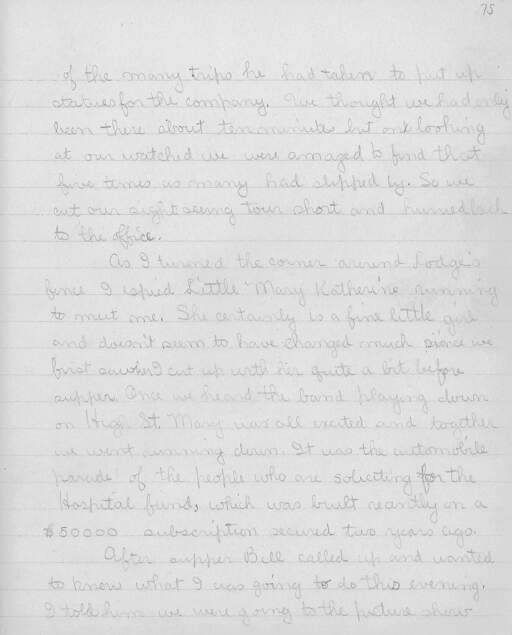 75
of the many trips he had taken to put up
statues for the company. We thought we had only
been there about ten minutes but on looking
at our watched we were amazed to find that
five times as many had slipped by. So we
cut our sight seeing tour short and hurried back
to the office.
As I turned the corner around Dodge's
fence I espied Little Mary Katherine running
to meet me. She certainly is a fine little girl
and doesn't seem to have changed much since we
first saw her. I cut up with her quite a bit before
supper. Once we heard the band playing down
on High St. Mary was all excited and together
we went running down. It was the automobile
parade of the people who are soliciting for the
Hospital fund, which was built recently on a
$50000 subscription secured two years ago.
After supper Bill called up and wanted
to know what I was going to do this evening.
I told him we were going to the picture show